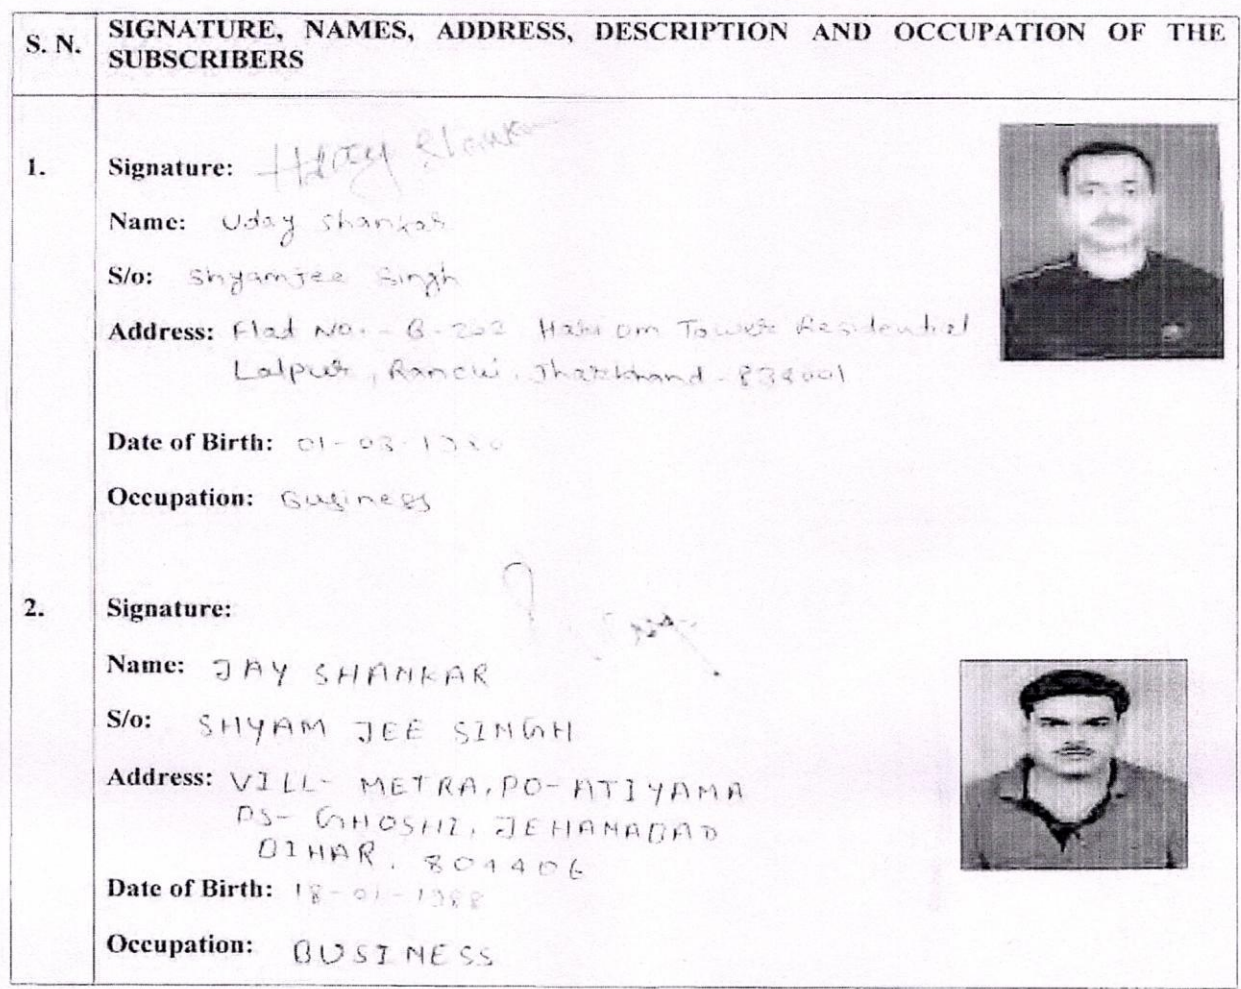 S. N. SIGNATURE, NAMES, ADDRESS, DESCRIPTION AND OCCUPATION OF THE
SUBSCRIBERS
1. Signature: Uday Shankar
Name: Uday Shankar
S/o: Shyamjee Singh
Address: Flat No. - B-202 Hari om Tower Residential
Lalpur, Ranchi, Jharkhand - 834001
Date of Birth: 01-03-1980
Occupation: Business
2. Signature:
Name: JAY SHANKAR
S/o: SHYAM JEE SINGH
Address: VILL- METRA, PO- ATIYAMA
PS- GHOSHI, JEHANABAD
BIHAR. 804406
Date of Birth: 18-01-1988
Occupation: BUSINESS